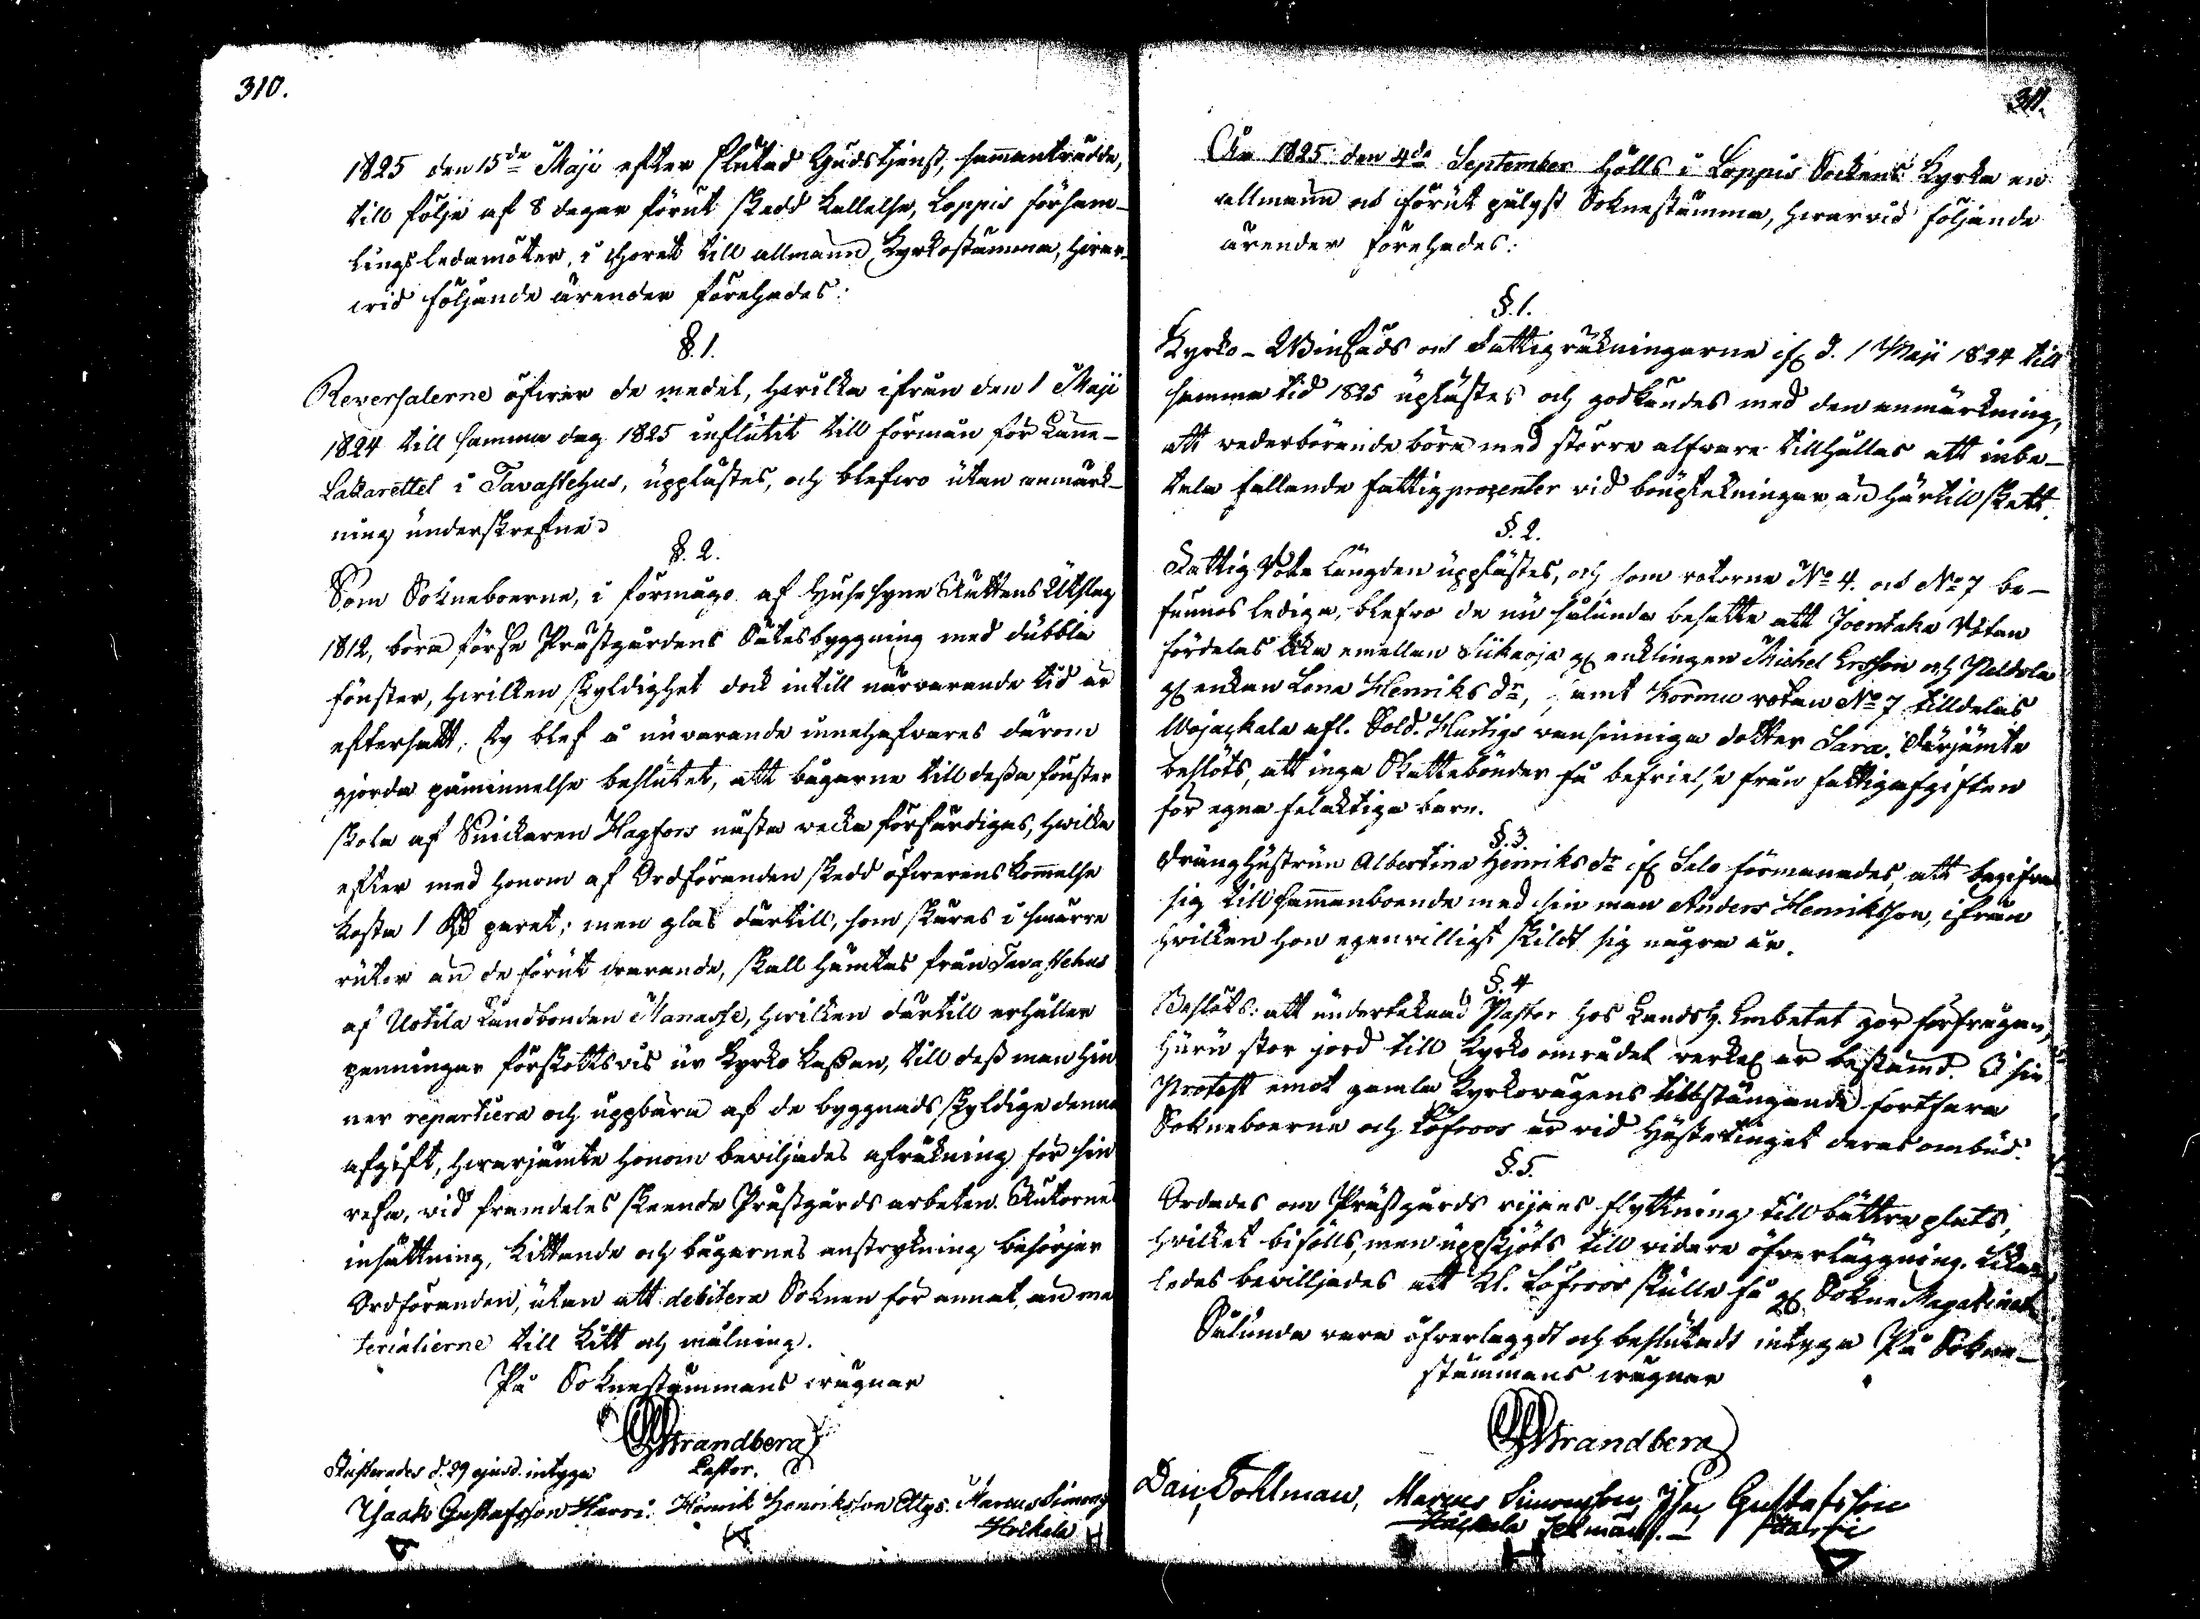 310.
1825 den 15de Maji efter slutad Gudstjenst, sammanträdde,
till följe af 8 dagar förut skedd kallelse, Loppis försam-
lings ledamöter, i choret till allmänn Kyrkostämma, hwar-
wid följande ärender förehades:
§. 1.
Reversalerne öfwer de medel, hwilka ifrån den 1 Maji
1824 till samma dag 1825 influtit till förmån för Läns-
Lazarettet i Tavastehus, uppläстes, och blefwo utan anmärk-
ning underskrefne.
§. 2.
Som Sokneboerne, i förmågo af Husesyns Rättens Utslag
1812, böra förse Prästgårdens Sätesbyggning med dubbla
fönster, hwilken skyldighet dock intill närvarande tid är
eftersatt; ty blef å nuvarande innehafvares därom
gjorda påminnelse beslutet, att bågarne till dessa fönster
skola af Snickaren Hagfors nästa vecka förfärdigas, hwilka
efter med honom af Ordföranden skedd öfwerenskommelse
kosta 1 Rb paret; men glas därtill, som skäras i smärre
rutor än de förut warande, skall hämtas från Tavastehus
af Uotila Landbonden Manasse, hwilken därtill erhåller
penningar förskottsvis ur Kyrko Kassan, till dess man hin-
ner repartiera och uppbära af de byggnadsskyldige denna
afgift, hwarjämte honom beviljades afräkning för sin
resa, vid framdeles skeende Prästgårds arbeten. Rutornes
insättning, kittande och bågarnes anstrykning besörjer
Ordföranden, utan att debitera Soknen för annat, än ma-
terialierne till kitt och målning.
På Soknestämmans wägnar
Strandberg
Pastor.
Justerades d. 29 ejusd. intyga
Isaak Gustafsson Harri. Henrik Henriksson Ellgs. Marcus Simons
Hoikala
311.
År 1825 den 4de September hölls i Loppis Sockens Kyrka en
allmänn och förut pålyst Soknestämma, hwarvid följande
ärender förehades:
§. 1.
Kyrko- Winsäds och Fattigräkningarne if. d. 1 Maji 1824 till
samma tid 1825 uplästes och godkändes med den anmärkning,
att wederbörande böra med större alfvare tillhållas att inbe-
tala fallande fattigprocenter vid bouptekningar, än härtill skett.
§. 2.
Fattig Rote Längden upplästes, och som rotorne No 4. och No 7 be-
funnos lediga, blefvo de nu sålunda besatte att Joentaka Rotan
fördelas lika emellan Siikaoja enklingen Michel Ersson och Peldola
enkan Lena Henriks dr, samt Kormu rotan No 7 tilldelas
Wojaskala afl. Sold. Hurtigs vansinniga dotter Sara. Därjämte
beslöts, att inga Skattebönder få befrielse från fattigafgiften
för egna felaktiga barn.
§. 3.
Dräng hustrun Albertina Henriks dr if. Salo förmanades, att begifva
sig till sammanboende med sin man Anders Henriksson, ifrån
hvilken hon egenvilligt skildt sig några år.
§. 4
Beslöts: att undertecknad Pastor hos Landsh. Embetet gör förfrågan,
huru stor jord till Kyrko området verkel. är bestämd. I sin
Protest emot gamla Kyrkovägens tillstängande fortfara
Sokneboerne och Löfroos är vid Hösttetinget deras ombud.
§. 5.
Ordades om Prästgårds rijans flyttning till bättre plats,
hvilket bifölls, men uppskjöts till vidare öfverläggning. Lika-
ledes bevilljades att Kl. Löfroos skulle få Sokne Magasinet
Sålunda vara öfverlaggdt och beslutadt intyga På Sokne-
stämmans wägnar
Strandberg
Dan. Dohlman, Marcus Simonsson Isac Gustafsson
Harri